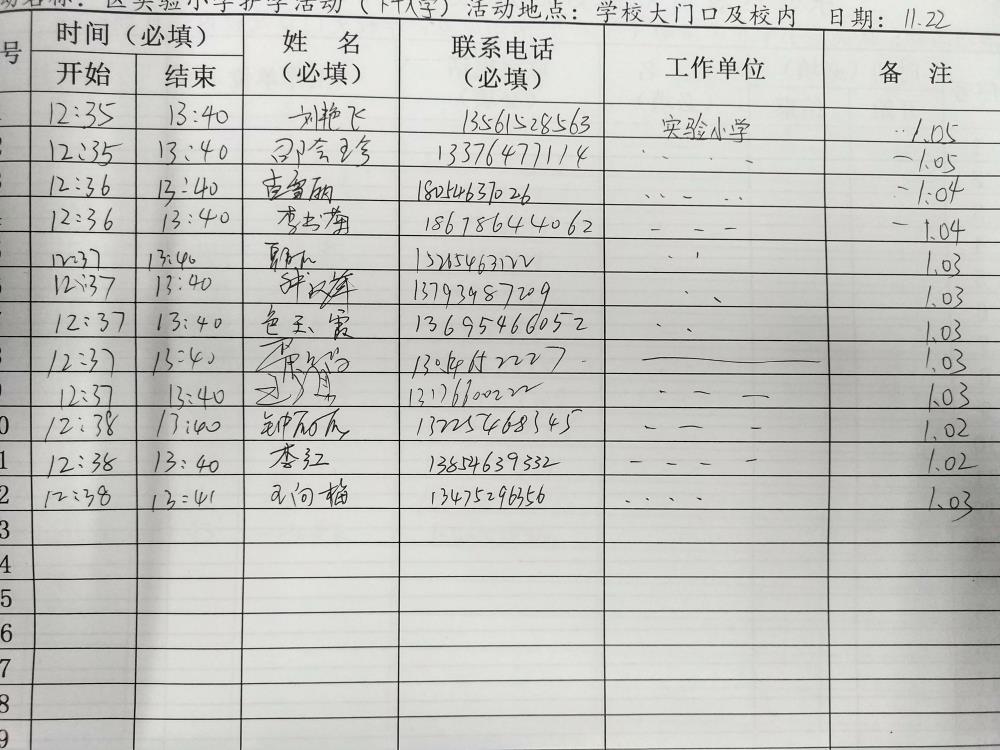 动名称：区实验小学护学活动（下午入学）活动地点：学校大门口及校内 日期：11.22
号 时间（必填） 姓 名（必填） 联系电话（必填） 工作单位 备 注
开始 结束
12:35 13:40 刘艳飞 13561528563 实验小学 1.05
2 12:35 13:40 13376477114 1.05
3 12:36 13:40 18054637026 1.04
4 12:36 13:40 18678644062 1.04
5 12:37 13:40 15265463122 1.03
6 12:37 13:40 13793987209 1.03
7 12:37 13:40 13695466052 1.03
8 12:37 13:40 1.03
9 12:37 13:40 1.03
0 12:38 13:40 13225468345 1.02
1 12:38 13:40 李红 13854639332 1.02
2 12:38 13:41 13475296356 1.03
3
4
5
6
7
8
9